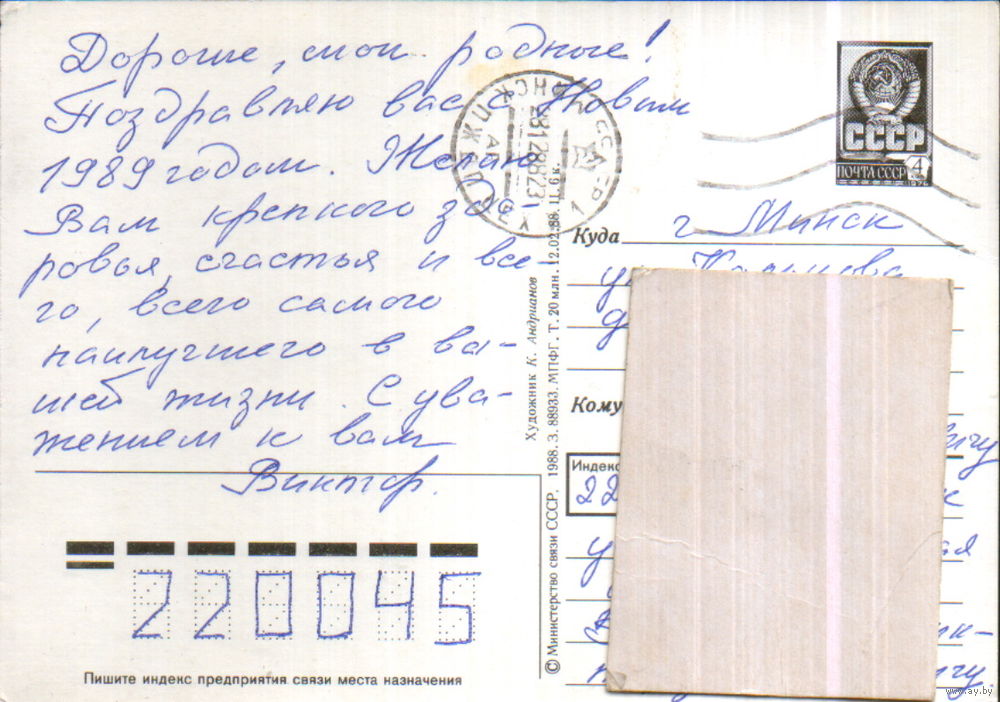 Дорогие, мои родные!
Поздравляю вас с Новым
1989 годом. Желаю
Вам крепкого здо
ровья, счастья и все-
го, всего самого
наилучшего в ва-
шей жизни. С ува-
жением к вам
Виктор.
220045
Пишите индекс предприятия связи места назначения
© Министерство связи СССР. 1988. З. 88933. МПФГ. Т. 20 млн. 12.02.88. Ц. 6 к.
Художник К. Андрианов
СССР
ПОЧТА СССР 4
1976
Куда г. Минск
ул.
д.
Кому
Индекс
22
www.ay.by